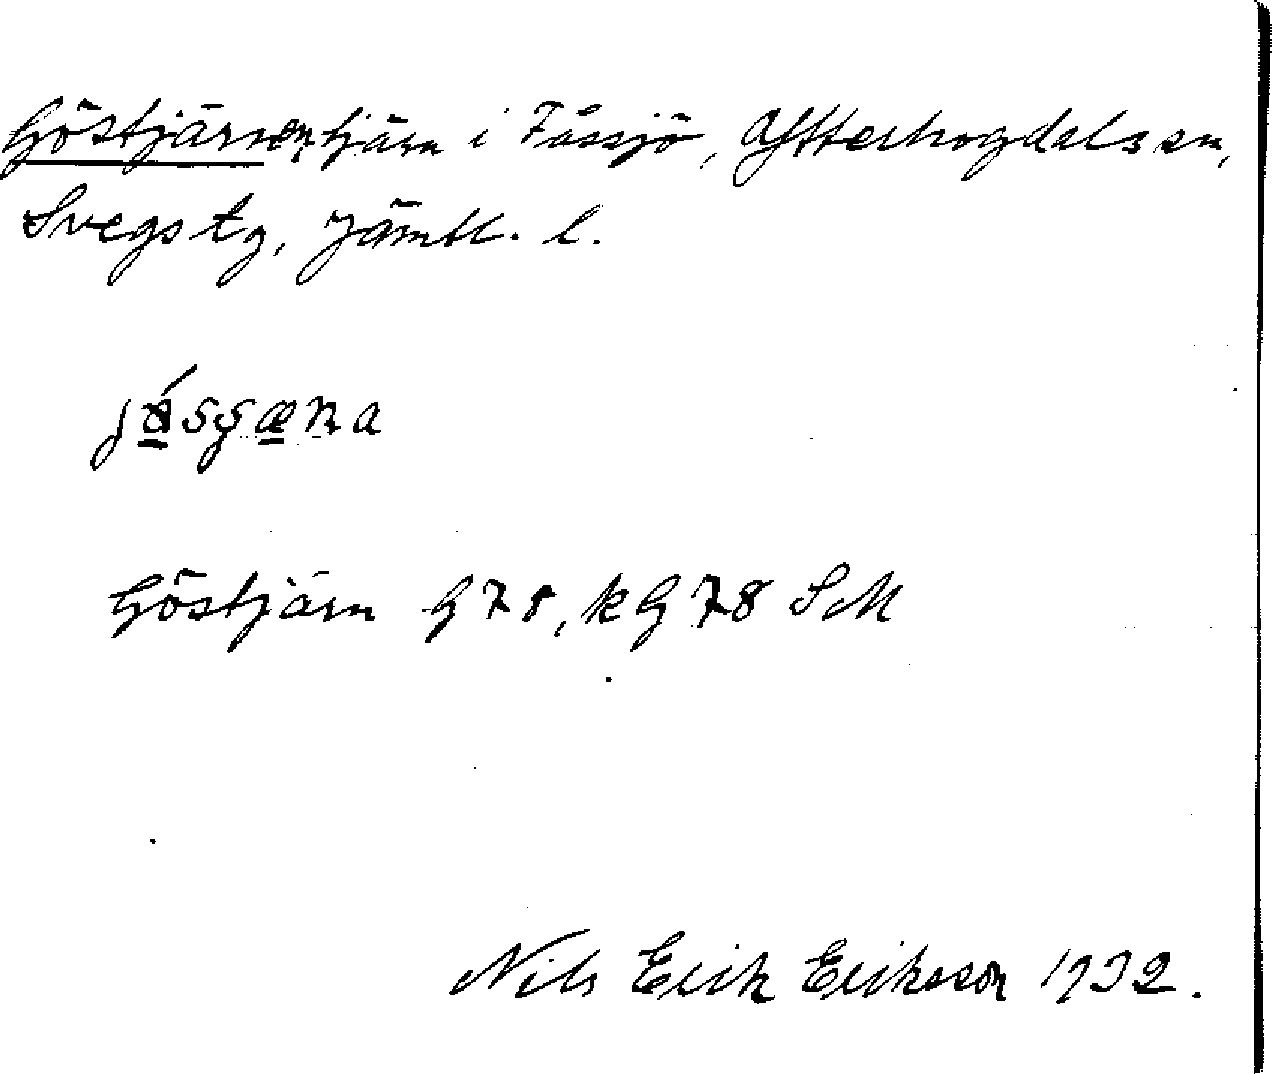 Göstjärnen, tjärn i Fåssjö, Ytterhogdals sn,
Svegs tg, Jämtl. l.
Göstjärn G 78, k G 78 SvK
Nils Erik Eriksson 1932.